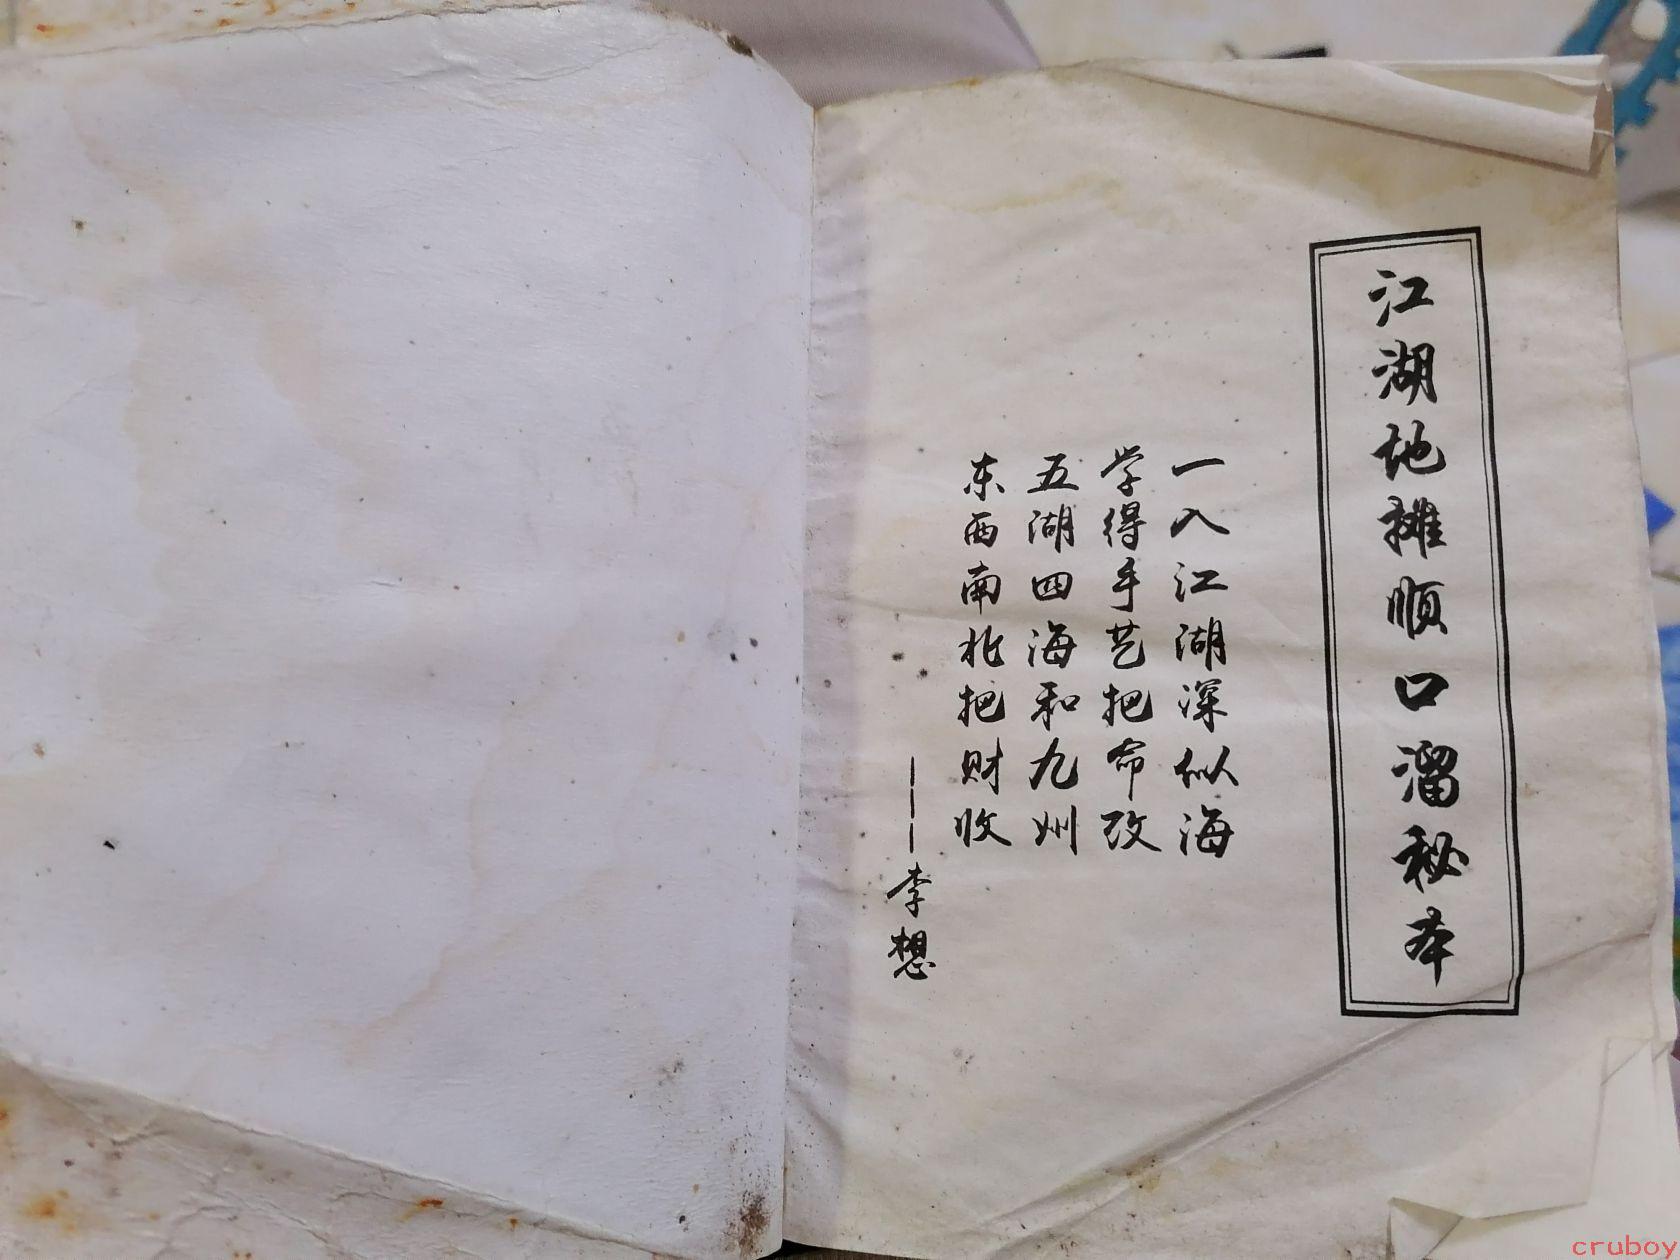 江湖地摊顺口溜秘本
一入江湖深似海
学得手艺把命改
五湖四海和九州
东西南北把财收
———李想
cruboy